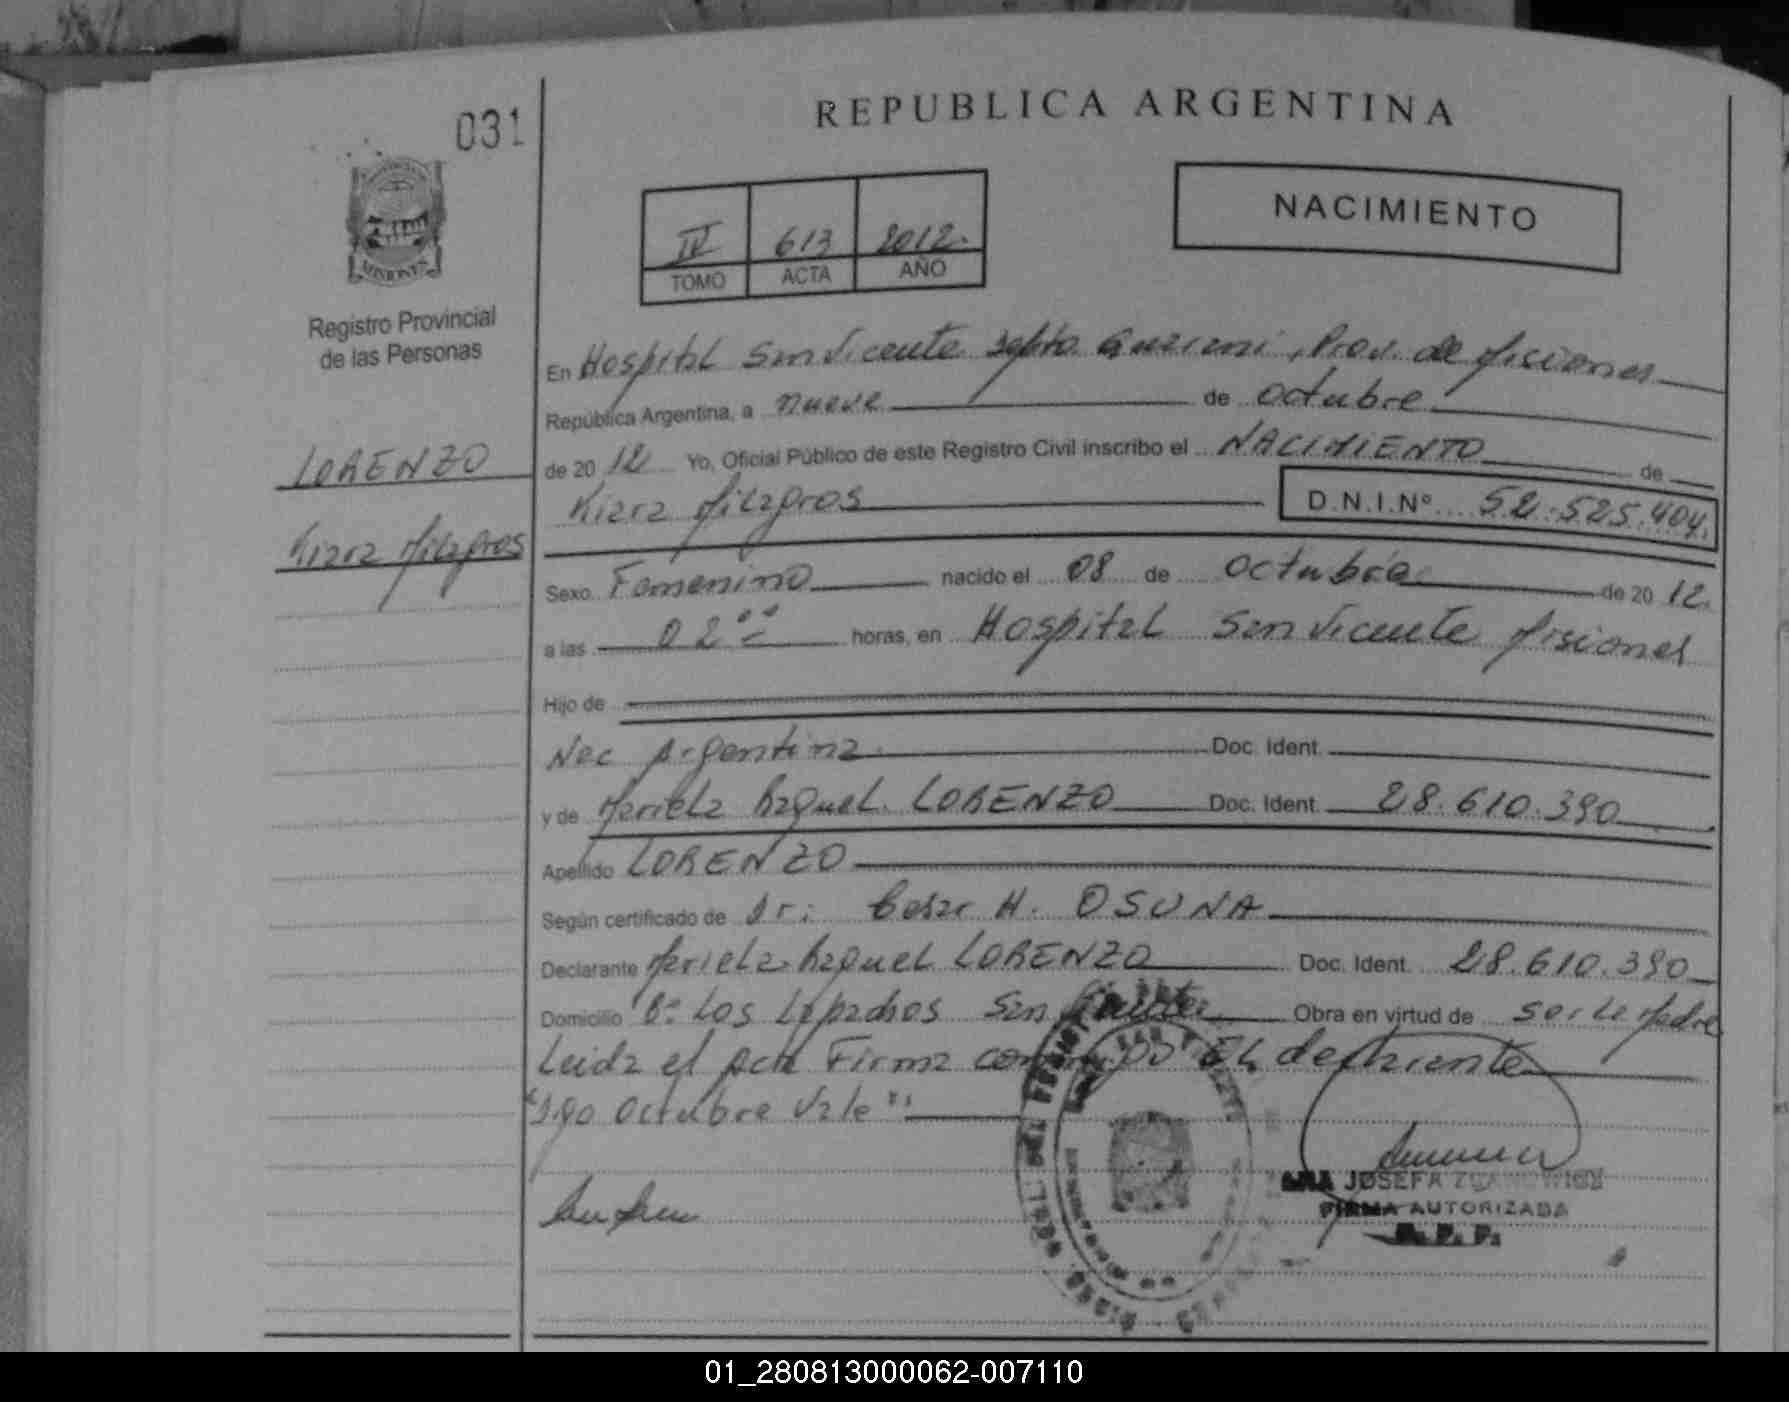 REPUBLICA ARGENTINA
031
NACIMIENTO
IV 613 2012.
TOMO ACTA AÑO
MISIONES
Registro Provincial
de las Personas
En Hospital San Vicente Dpto Guarani, Prov. de Misiones
República Argentina, a nueve de octubre
LORENZO
de 20 12 Yo, Oficial Público de este Registro Civil inscribo el NACIMIENTO de
Kiara Milagros D.N.I.Nº 52.525.404.
Kiara Milagros
Sexo Femenino nacido el 08 de octubre de 20 12.
a las 02 00 horas, en Hospital San Vicente Misiones
Hijo de
Nac Argentina Doc. Ident.
y de Mariela Raquel LORENZO Doc. Ident. 28.610.390
Apellido LORENZO
Según certificado de Dr: Cesar H. OSUNA
Declarante Mariela Raquel LORENZO Doc. Ident. 28.610.390
Domicilio Bº Los Lapachos San Vicente Obra en virtud de ser la Madre
Leida el acta Firma El declarante
"Digo octubre Vale":
JOSEFA
FIRMA AUTORIZADA
01_280813000062-007110